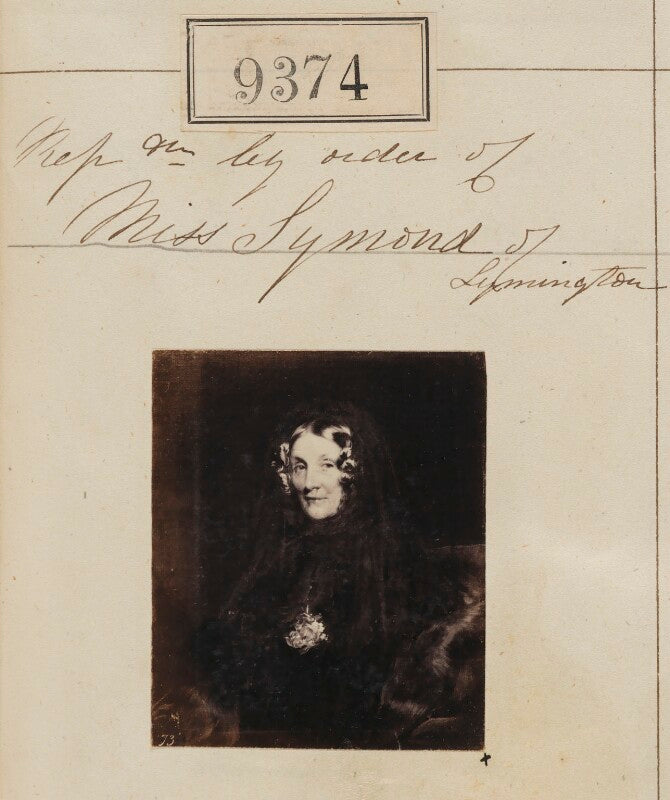 9374
Rep by order of
Miss Symond of
Lymington
73